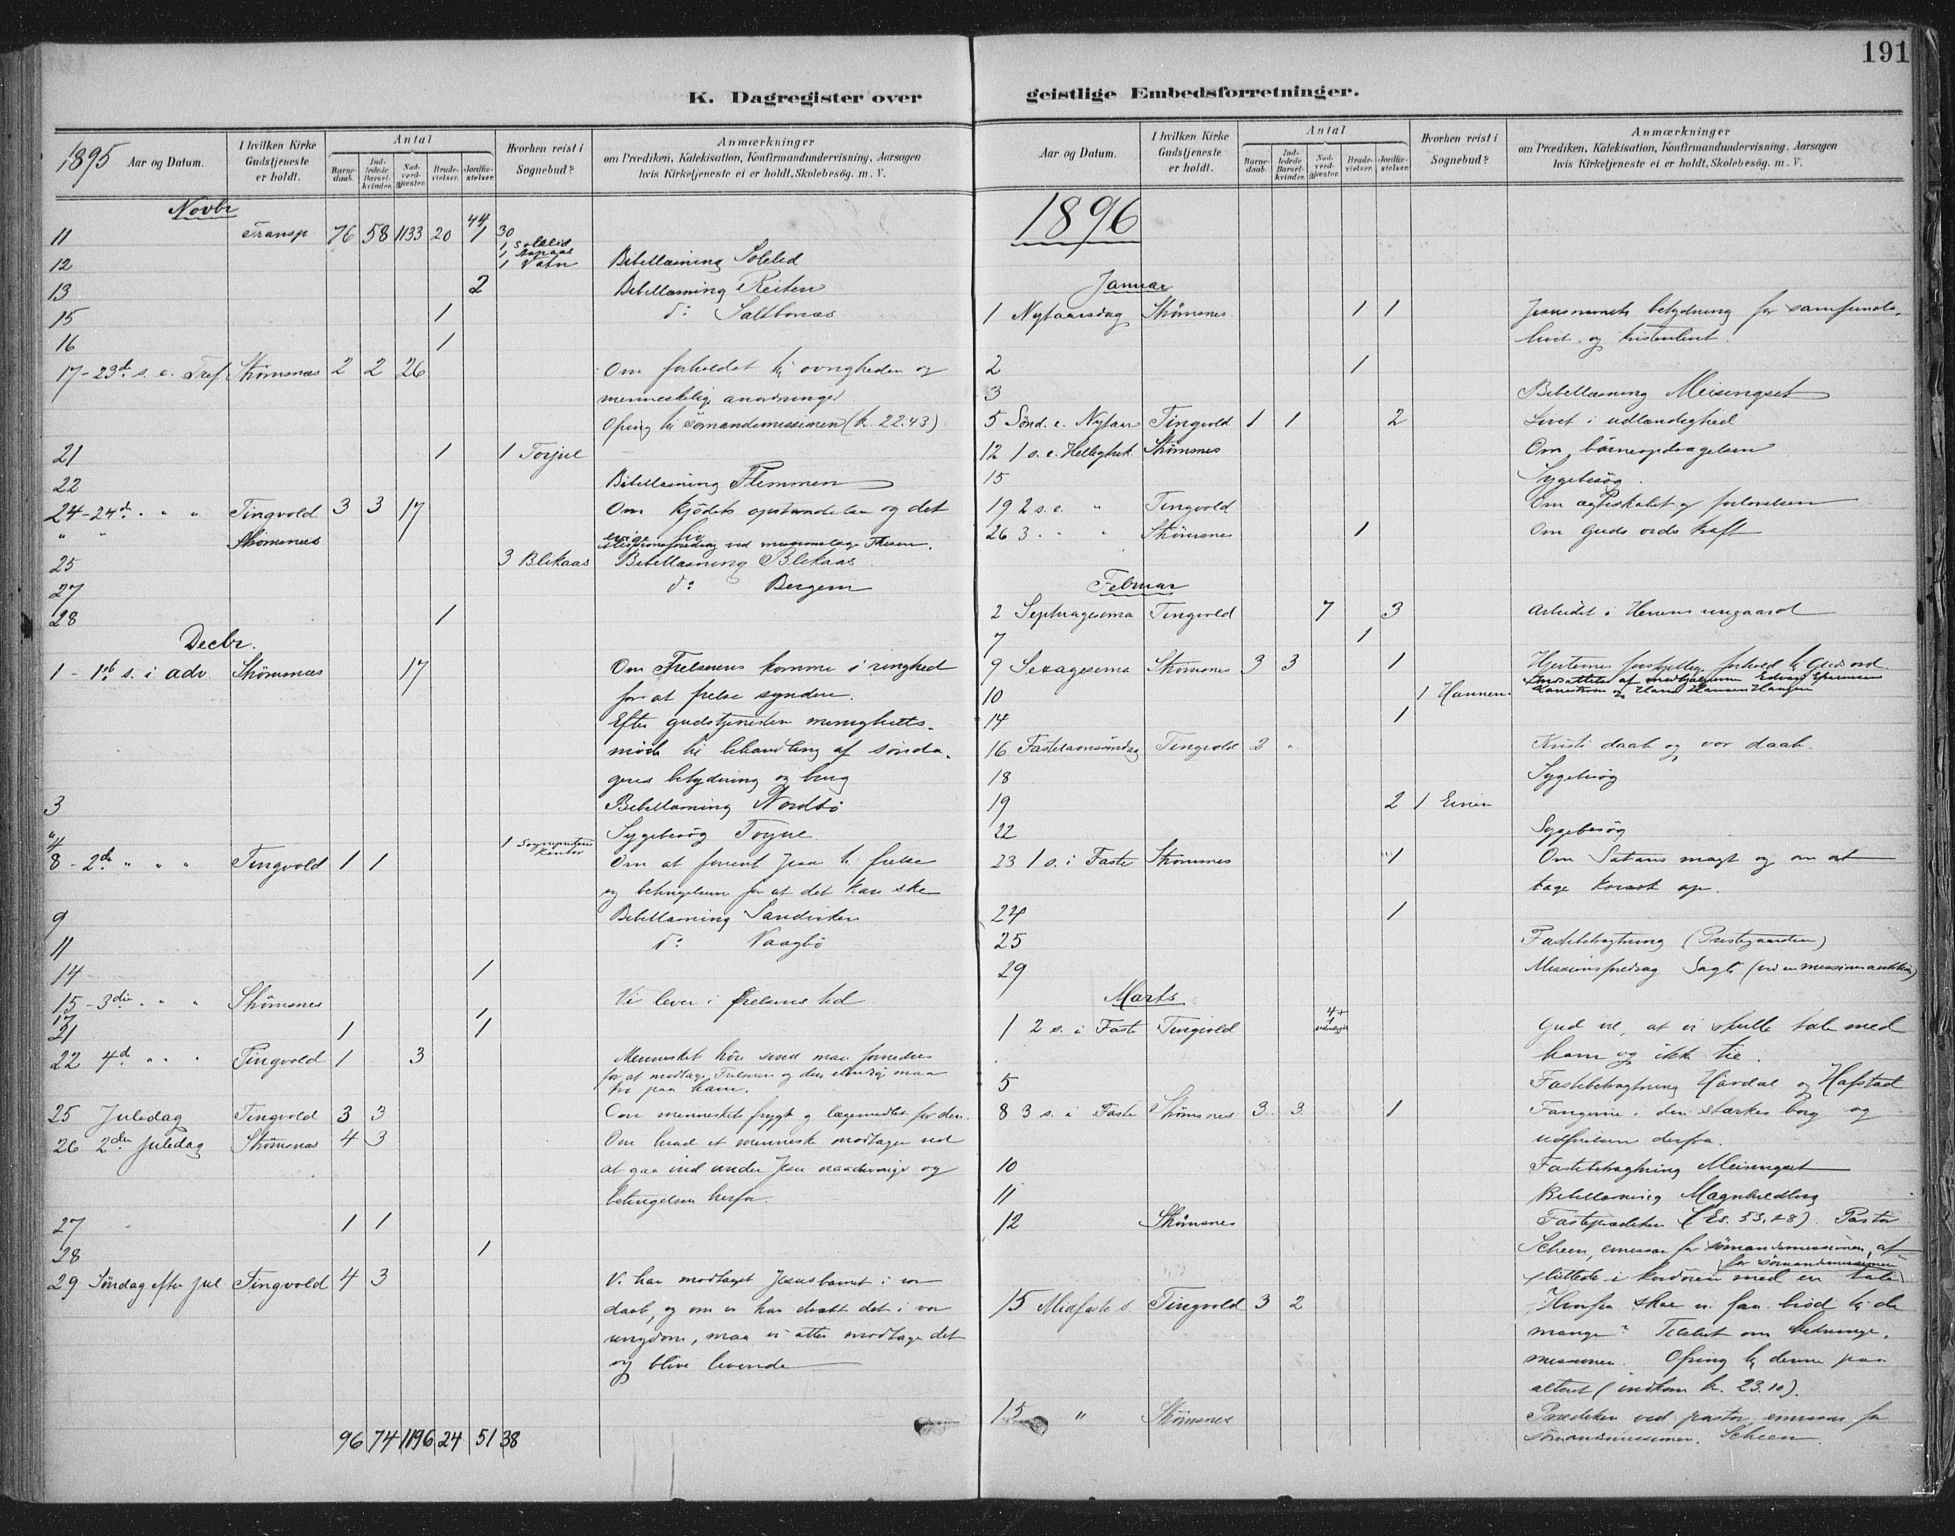 191
K. Dagregister over
1895
Aar og Datum.
I hvilken Kirke Gudstjeneste er holdt.
Antal
Barne-daab.
Ind-ledede Barsel-kvinder.
Nad-verd-gjæster.
Brude-vielser.
Jordfæ-stelser.
Hvorhen reist i Sognebud?
Anmærkninger
om Prædiken, Katekisation, Konfirmandundervisning, Aarsagen
hvis Kirketjeneste ei er holdt, Skolebesøg. m. V.
Novbr
11 Transp 76 58 1133 20 44 1 30
1 Solelid
1 Aspaas
12 1 Vatn Bibellæsning Solelid
13 2 Bibellæsning Reiten
15 1 do Saltbones
16 1
17 - 23de s. e. Tref. Strømsnæs 2 2 26 Om forholdet til øvrigheden og
menneskelige anordninger
Ofring til sømandsmissionen (kr. 22.43)
21 1 1 Torjul
22 Bibellæsning Flemmen
24 - 24de " " " Tingvold 3 3 17 Om kjødets opstandelse og det
evige liv
" " Strømsnæs Missionsforedrag ved
25 3 Blekaas Bibellæsning Blekaas
27 do Bergem
28 1
Decbr.
1 - 1ste s. i adv. Strømsnæs 17 Om Frelserens komme i ringhed
for at frelse syndere.
Efter gudstjenesten menigheds-
møde til behandling af sønda-
gens betydning og brug
3 Bibellæsning Nordbø
4 Sygebesøg Torjul
8 - 2den " " " Tingvold 1 1 1 Om at Jesu til frelse
og betingelsen for at det kan ske
9 Bibellæsning Sandviken
11 do Vaagbø
14 1
15 - 3die " " " Strømsnes Vi lever i frelsens tid
17 1
21 1 1
22 4de " " " Tingvold 1 3 Mennesket maa
for at modtage Frelseren og den maa
tro paa ham.
25 Juledag Tingvold 3 3 Om menneskets frygt og lægemidlet for den.
26 2den juledag Strømsnæs 4 3 Om hvad et menneske modtager ved
at gaa ind under Jesu og
betingelsen herfor.
27 1 1
28 1
29 Søndag efter jul Tingvold 4 3 Vi har modtaget Jesusbarnet i vor
daab, og om vi har dræbt det i vor
ungdom, maa vi atter modtage det
og blive levende
96 74 1196 24 51 38
geistlige Embedsforretninger.
Aar og Datum.
I hvilken Kirke Gudstjeneste er holdt.
Antal
Barne-daab.
Ind-ledede Barsel-kvinder.
Nad-verd-gjæster.
Brude-vielser.
Jordfæ-stelser.
Hvorhen reist i Sognebud?
Anmærkninger
om Prædiken, Katekisation, Konfirmandundervisning, Aarsagen
hvis Kirketjeneste ei er holdt, Skolebesøg. m. V.
1896
Januar
1 Nytaarsdag Strømsnes 1 1 Jesusnavnets betydning for samfunds-
livet og kristenlivet.
2 1
3 Bibellæsning Meisingset
5 Sønd. e. Nytaar Tingvold 1 1 2 Livet i udlændighed
12 1 s. e. Helligtrek. Strømsnes Om børneopdragelsen
15 Sygebesøg.
19 2 s. e. " Tingvold Om ægteskabet og forlovelsen
26 3 " " Strømsnes 1 Om Guds ords kraft
Februar
2 Septuagesima Tingvold 7 3 Arbeidet i Herrens vingaard
7 1
9 Sexagesima Strømsnes 3 3 1 Hjerternes forskjellige forhold til Guds ord.
10 1 Hannem
14 1
16 Fastelavnssøndag Tingvold 2 " Kristi daab og vor daab.
18 Sygebesøg
19 2 1
22 Sygebesøg
23 1 s. i Faste Strømsnes 1 Om Satans magt og om at
tage korset op.
24 1
25 Fastebetragtning (Prestegaarden)
29 Missionsforedrag Sagli (ved en missionsauktion)
Marts
1 2 s. i Faste Tingvold 4+1 Gud vil, at vi skulle tale med
ham og ikke tie.
5 Fastebetragtning Hovdal og Hafstad
8 3 s. i Faste Strømsnes 3 3 1 Fangerne i den stærkes borg og
udfrielsen derfra.
10 Fastebetragtning Meisingset
11 Bibellæsning Magnhildberg
12 Strømsnes Fasteprædiken (Es. 53, 4-8). Pastor
Scheen, emissær for sømandsmissionen, af-
sluttede i kordøren med en tale for sømandsmissionen
15 Midfaste s. Tingvold 3 2 Hvorfra skal vi faa brød til de
mange? Talebet om
missionen. Ofring til denne paa
alteret (indkom kr. 23.10).
15 " Strømsnes Prædiken ved pastor, emissær for
sømandsmissionen, Scheen.